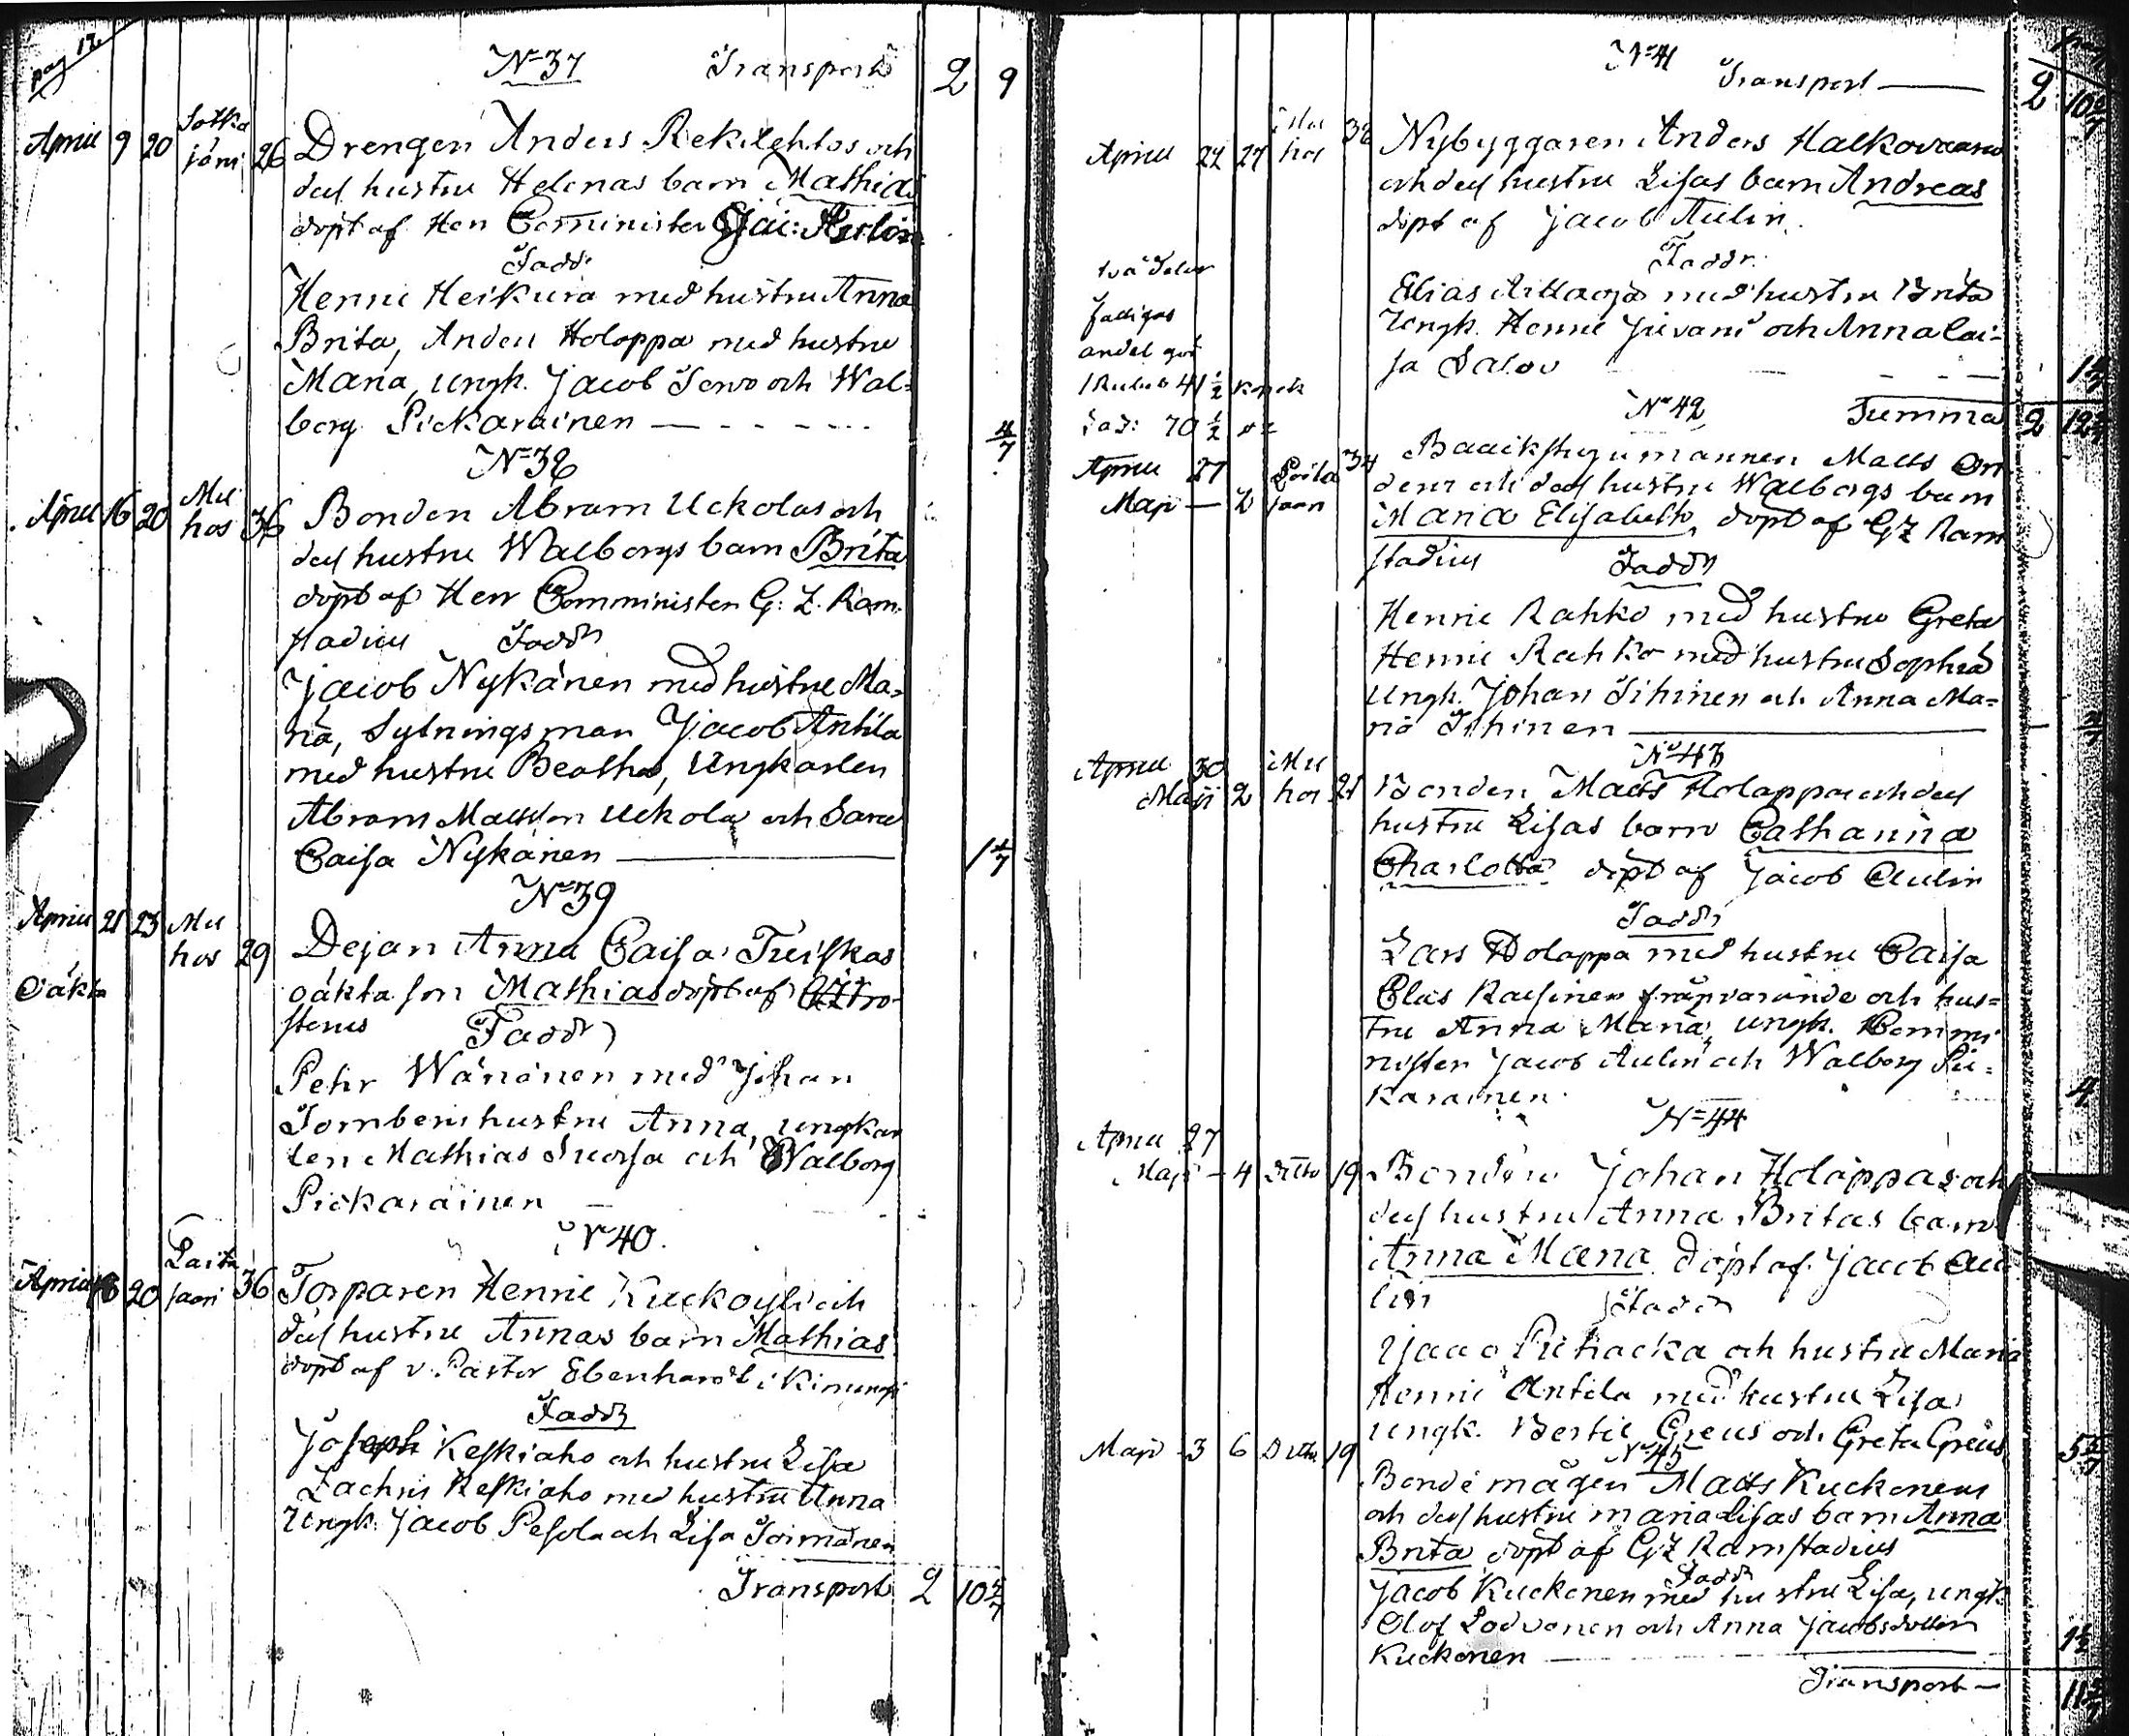 pag 12.
N=37 Transport 2 9
April 9 20 Sotka
jäni 26 Drengen Anders Rekilehtos och
dess hustru Helenas barn Mathias
döpt af Herr Comminister Jac: Aulin
Fadd:
Henric Heikura med hustru Anna
Brita, Anders Holappa med hustru
Maria, ungk. Jacob Servo och Wal=
borg Pickarainen 4/7
N=38
April 16 20 Mu
hos 36 Bonden Abram Uckolas och
dess hustru Walborgs barn Brita
döpt af Herr Comministern G: Z. Ram
stadius Fadd
Jacob Nykänen med hustru Ma=
ria, Sytningsman Jacob Anttila
med hustru Beatha, Ungkarlen
Abram Mattsson Uckola och Sara
Caisa Nykänen 1 4/7
N=39
April 21 23 Mu
hos 29 Dejan Anna Caisa Tuiskas
Oäkta oäkta son Mathias döpt af
stenius Fadd
Petr Wänänen med Johan
Tombens hustru Anna, ungkar
len Mathias Suorsa och Walborg
Pickarainen
N 40.
April 18 20 Paita
saari 36 Torparen Henric Kuckoyli och
dess hustru Annas barn Mathias
döpt af v. Pastor Ebenhardt i Kimingi
Fadd
Joseph Keskiaho och hustru Lisa
Zachris Keskiaho med hustru Anna
Ungk. Jacob Pesola och Lisa Toimanen
Transport 2 10 5/7
N=41
Transport 2 10 5/7
April 24 27 Mu
hos 38 Nybyggaren Anders Halkovaaras
och dess hustru Lisas barn Andreas
döpt af Jacob Aulin.
Faddr.
två delar
fattigas
andel gör
1 Rubel 41 1/2 Kopek
Elias med hustru Brita
Ungk. Henric Jurvani och Anna Cai=
sa Salov
N=42 Summa 2 12
April 27
Maji — 2 34 Matts
dens och dess hustru Walborgs barn
Maria Elisabeth, döpt af G Z Ram
stadius Fadd
Henric Rahko med hustru Greta
Henric Rahko med hustru Sophia
Ungk. Johan Tihinen och Anna Ma=
ria Tihinen
N=43
April 30
Maji 2 Mu
hos 21 Bonden Matts Holappa och dess
hustru Lisas barn Catharina
Charlotta döpt af Jacob Aulin
Fadd
Lars Holappa med hustru Caisa
Elias Raisinen frånvarande och hus=
tru Anna Maria, ungk. Commi
nister Jacob Aulin och Walborg Pic=
karainen 4
N=44
April 27
Maji — 4 Ditto 19 Bonden Johan Holappas och
dess hustru Anna Britas barn
Anna Maria döpt af Jacob Au
lin Fadd
Isaac Pichacka och hustru Maria
Henric Antila med hustru Lisa
ungk. Bertil Greus och Greta Greus 5
N=45
Maji 3 6 Ditto 19 Bondemågen Matts Kuckonens
och dess hustru Maria Lisas barn Anna
Brita döpt af G Z Ramstadius
Fadd
Jacob Kuckonen med hustru Lisa, ungk.
Olof Lodvonen och Anna Jacobsdotter
Kuckonen
Transport — 11